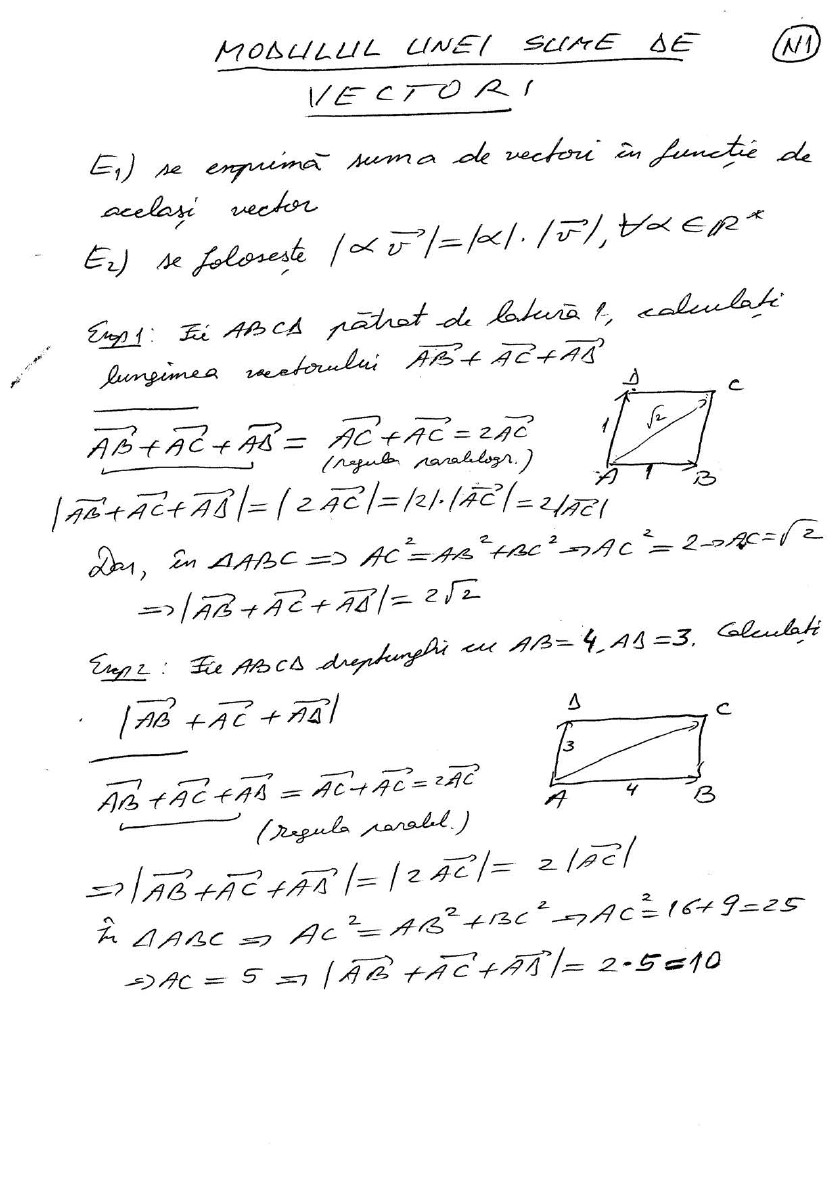 MODULUL UNEI SUME DE
N1
VECTORI
E₁) se exprimă suma de vectori în funcție de
același vector
E₂) se folosește |α v⃗| = |α|·|v⃗|, ∀α ∈ ℝ*
Exp 1: Fie ABCD pătrat de latură 1, calculați
lungimea vectorului AB⃗ + AC⃗ + AD⃗
D C
1 √2
A 1 B
AB⃗ + AC⃗ + AD⃗ = AC⃗ + AC⃗ = 2AC⃗
(regula paralelogr.)
|AB⃗ + AC⃗ + AD⃗| = |2AC⃗| = |2|·|AC⃗| = 2|AC⃗|
Dar, în ΔABC ⇒ AC² = AB² + BC² ⇒ AC² = 2 ⇒ AC = √2
⇒ |AB⃗ + AC⃗ + AD⃗| = 2√2
Exp 2: Fie ABCD dreptunghi cu AB = 4, AD = 3. Calculați
|AB⃗ + AC⃗ + AD⃗|
D C
3
A 4 B
AB⃗ + AC⃗ + AD⃗ = AC⃗ + AC⃗ = 2AC⃗
(regula paralel.)
⇒ |AB⃗ + AC⃗ + AD⃗| = |2AC⃗| = 2|AC⃗|
În ΔABC ⇒ AC² = AB² + BC² ⇒ AC² = 16 + 9 = 25
⇒ AC = 5 ⇒ |AB⃗ + AC⃗ + AD⃗| = 2·5 = 10